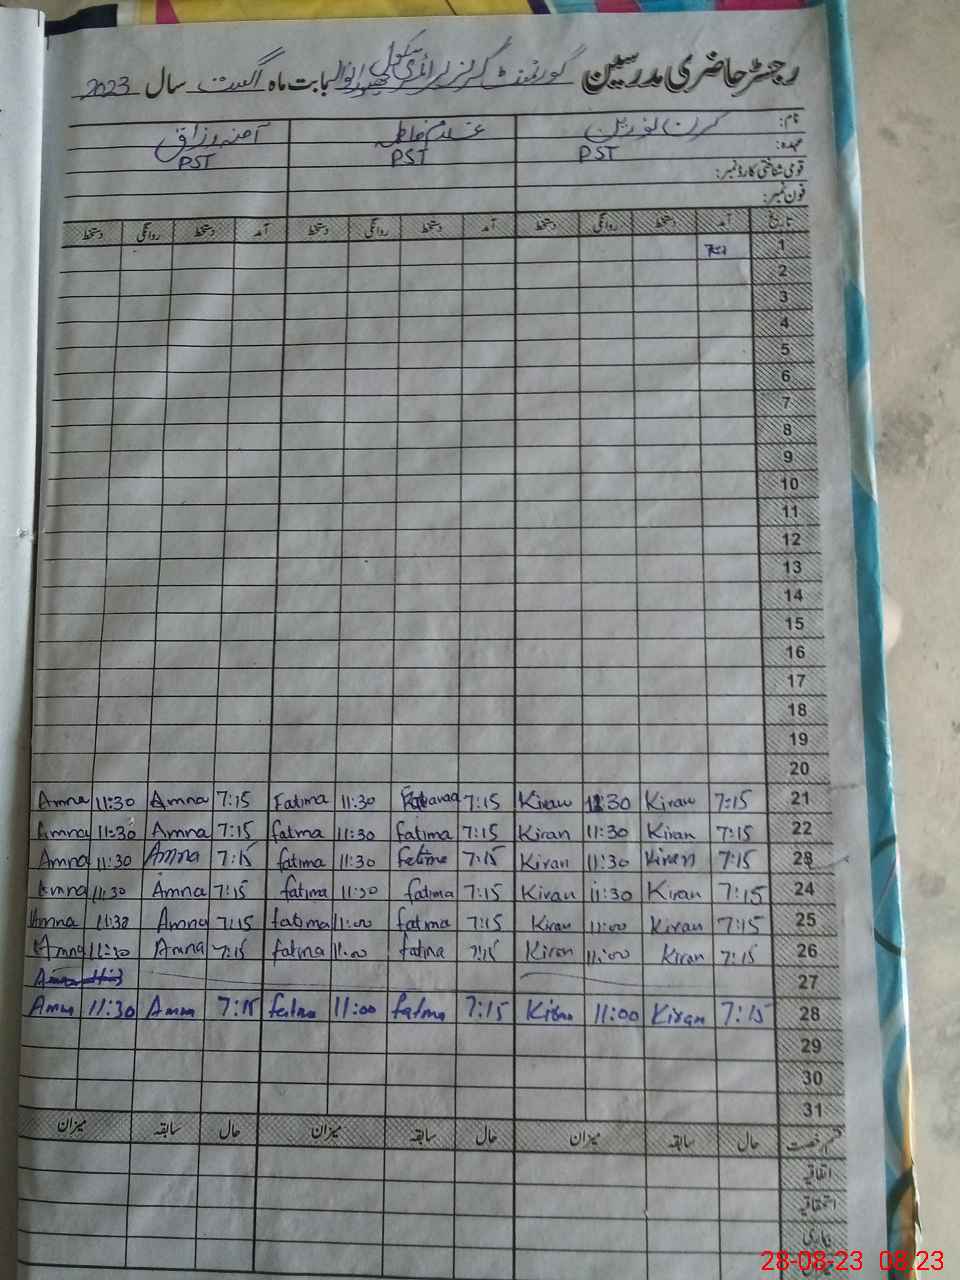 رجسٹر حاضری مدرسین گورنمنٹ گرلز پرائمری سکول بابت ماہ اگست سال 2023
نام: کرن نورین غلام فاطمہ آمنہ رزاق
عہدہ: PST PST PST
قومی شناختی کارڈ نمبر:
فون نمبر:
تاریخ آمد دستخط روانگی دستخط آمد دستخط روانگی دستخط آمد دستخط روانگی دستخط
1
2
3
4
5
6
7
8
9
10
11
12
13
14
15
16
17
18
19
20
Amna 11:30 Amna 7:15 Fatima 11:30 7:15 Kiran 11:30 Kiran 7:15 21
Amna 11:30 Amna 7:15 fatma 11:30 fatima 7:15 Kiran 11:30 Kiran 7:15 22
Amna 11:30 Amna 7:15 fatima 11:30 fatime 7:15 Kiran 11:30 Kiran 7:15 23
Amna 11:30 Amna 7:15 fatima 11:30 fatima 7:15 Kiran 11:30 Kiran 7:15 24
Amna 11:30 Amna 7:15 fatima 11:00 fatma 7:15 Kiran 11:00 Kiran 7:15 25
Amna 11:30 Amna 7:15 fatina 11:00 fatina 7:15 Kiran 11:00 Kiran 7:15 26
27
Amna 11:30 Amna 7:15 fatma 11:00 fatma 7:15 Kiran 11:00 Kiran 7:15 28
29
30
31
قسم رخصت حال سابقہ میزان حال سابقہ میزان حال سابقہ میزان
اتفاقیہ
استحقاقیہ
بیماری
28-08-23 08:23